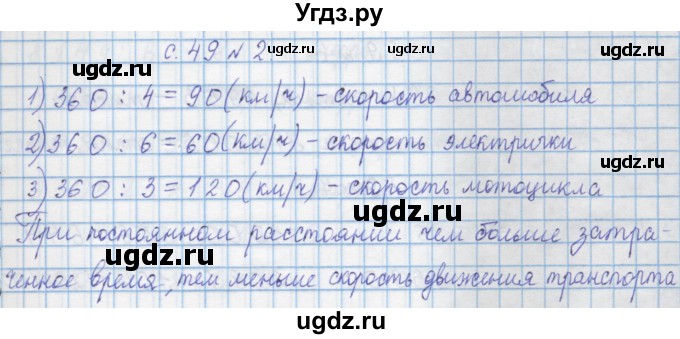 Угдз.ру
с. 49 № 2
ugdz.ru ugdz.ru
ugdz.ru
1) 360 : 4 = 90 (км/ч) - скорость автомобиля
ugdz.ru
2) 360 : 6 = 60 (км/ч) - скорость электрички
ugdz.ru ugdz.ru
3) 360 : 3 = 120 (км/ч) - скорость мотоцикла
ugdz.ru
При постоянном расстоянии чем больше затра-
ugdz.ru ugdz.ru
ченное время, тем меньше скорость движения транспорта
ugdz.ru ugdz.ru